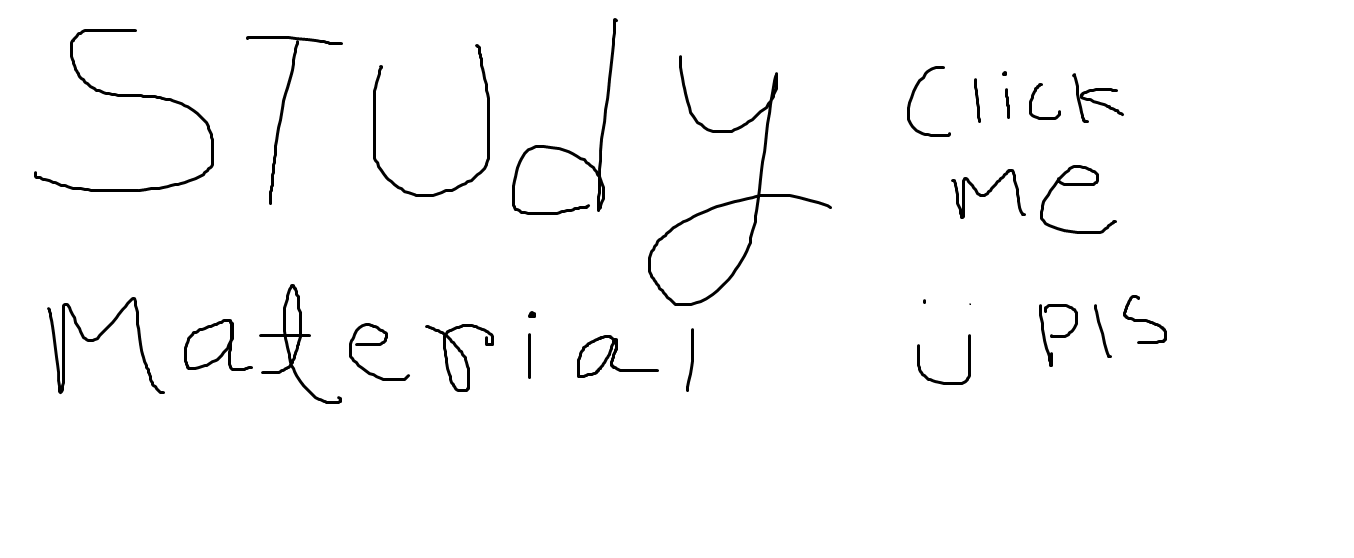 STUdy
Material
Click
Me
Pls